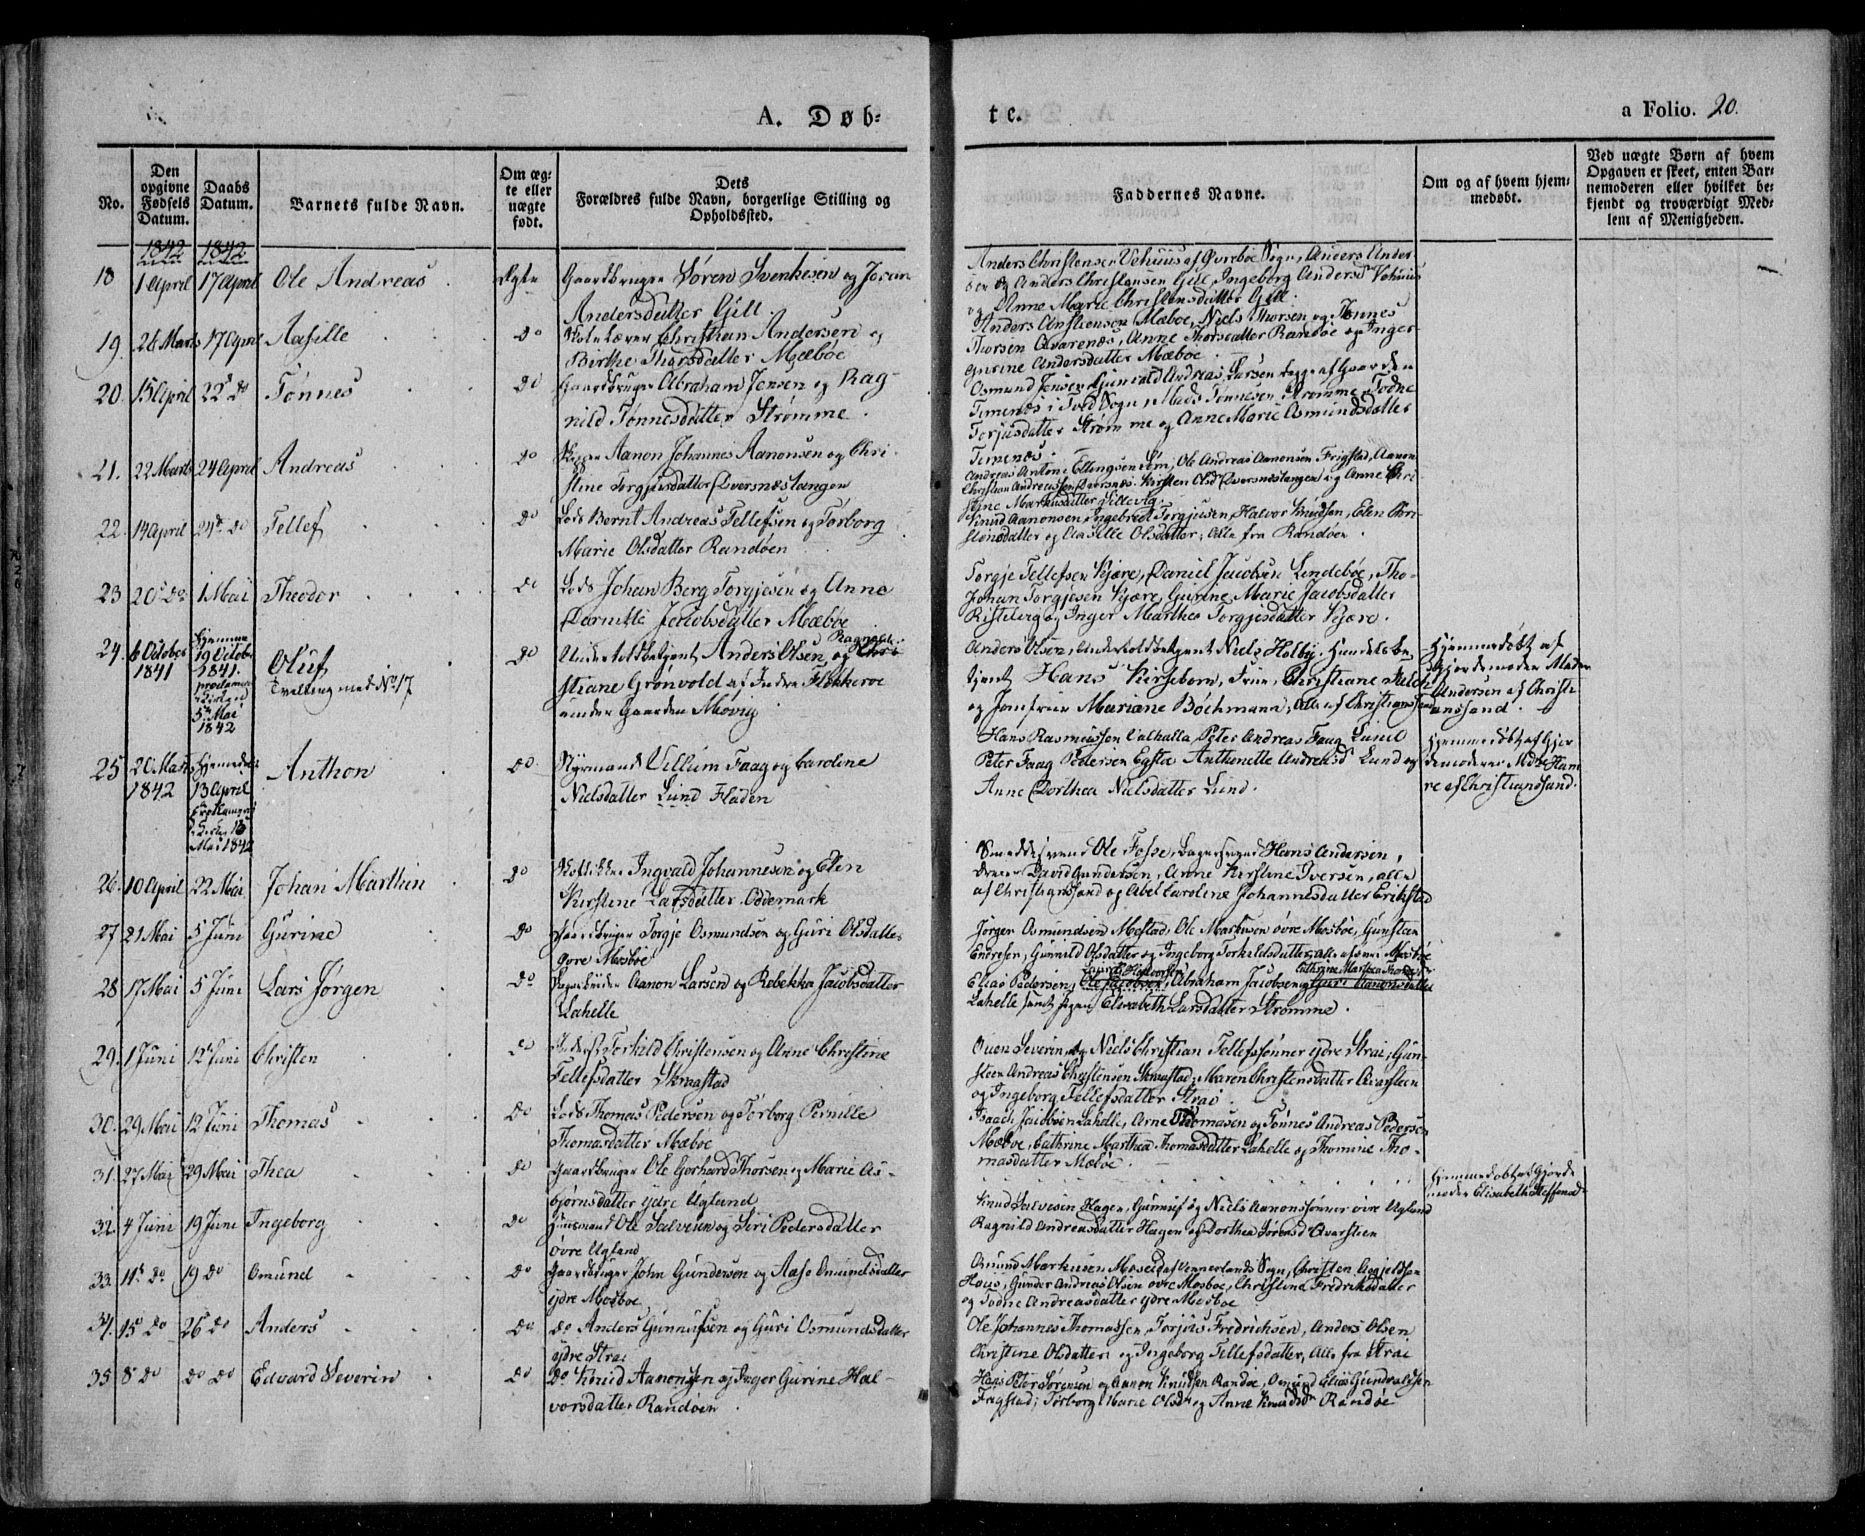 A. Døb-
te.
a Folio. 20.
No.
Den opgivne Fødsels Datum.
Daabs Datum.
Barnets fulde Navn.
Om ægte eller uægte født.
Dets Forældres fulde Navn, borgerlige Stilling og Opholdssted.
Faddernes Navne.
Om og af hvem hjemmedøbt.
Ved uægte Børn af hvem Opgaven er skeet, enten Barnemoderen eller hvilket bekjendt og troværdigt Medlem af Menigheden.
1842 1842
18 1 April 17 April Ole Andreas Ægte Gaardbruger Søren Svenkesen og Joran
Andersdatter Gill.
Anders Christensen Vehuus af Øvrebø Sogn, Anders Ander-
sen og Anders Christensen Gill, Ingeborg Andersd Vehuus
og Anne Marie Christensdatter Gill.
19. 26 Marts 17 April Aasille Do Christian Andersen og
Birthe Thorsdatter Mæbøe
Anders Christensen Mæboe, Niels Thorsen og Tønnes
Thorsen Qvarenæs, Anne Thorsdatter Randøe og Inger
Gurine Andersdatter Mæboe.
20. 15 April 22 do Tønnes Do Gaardbruger Abraham Jensen og Rag-
nild Tønnesdatter Strømme.
Osmund Jensen, Gunvald Andreas Larsen begge af Gaarden
Timenæs i Tved Sogn, Mads Tønnesen Strømme, Todne
Torjusdatter Strømme og Anne Marie Osmundsdatter
Timenæs.
21. 22 Marts 24 April Andreas Do Aanon Johannes Aanonsen og Chri-
stine Torgjusdatter Dversnæstangen
Andreas Anton Ellingsen Søm, Ole Andreas Aanonsen Frigstad, Aanon
Christian Andreassen Dversnæs, Kirsten Olsd Dversnæstangen og Anne Chri-
stine Markusdatter
22. 14 April 24 do Tellef Do Lods Bernt Andreas Tellefsen og Torborg
Marie Olsdatter Randøen
Knud Aanonsen, Ingebret Torgjusen, Halvor Knudsen, Elen Chri-
stensdatter og Aasille Olsdatter, Alle fra Randøen.
23 20 do 1 Mai Theodor do Lods Johan Berg Torgjesen og Anne
Pernille Jacobsdatter Mæbøe
Torgje Tellefsen Kjære, Daniel Jacobsen Lindebøe, Tho-
Johan Torgjesen Kjære, Gurine Marie Jacobsdatter
og Inger Marthea Torgjesdatter Kjære.
24. 6 October 1841 Hjemme 19 Octobr 1841. 5te Mai 1842 Oluf
Tvilling med No 17
Do Underholdbetjent Anders Olsen og Ragnalde Chri-
stiane Grønvold af Indre Flekkerøe
under Gaarden Møvig
Anders Olsen, Underholdsbetjent Niels Holby, Handelsbe-
tjent Hans Kirseborn, Frue Christiane
og Jomfrue Mariane Bochmann, Alle af Christianssand
Hjemmedøbt af
Gjordemoder Madm
Andersen af Christi-
anssand.
25 20 Marts 1842 Hjemmedøbt 13 April Mai 1842 Anthon do Styrmand Villum Faag og Caroline
Nielsdatter Lund Fladen
Hans Rasmussen Valhalla, Peter Andreas Faag Lund
Peter Faag Pedersen Egsta Anthonette Andreasd Lund og
Anne Dorthea Nielsdatter Lund.
Hjemmedøbt af Gjor-
demoder Mdm Ham-
re af Christianssand.
26 10 April 22 Mai Johan Marthin do Ingvald Johannesen og Elen
Kirstine Larsdatter Oddemark
Smeddesvend Ole Fosse, Bagersvend Hans Andersen,
David Gundersen, Anne Kirstine Iversen, alle
af Christianssand og Abel Caroline Johannesdatter Erikstad
27 21 Mai 5 Juni Gurine do Gaardbruger Torgje Osmundsen og Guri Olsdatter
Øvre Mosbøe
Jørgen Osmundsen Mostad, Ole Markusen øvre Mosbøe, Gunsteen
Endresen, Gunnild Olsdatter og Ingeborg Torkildsdatter, alle af øvre Mosbøe
28 17 Mai 5 Juni Lars Jørgen do Aanon Larsen og Rebekka Jacobsdatter
Lahelle
Elias Pedersen, Ole Jacobsen, Abraham Jacobsen og Guri Aanonsdatter
Lahelle samt Elisabeth Larsdatter Strømme.
29. 1 Juni 12 Juni Christen do Torkild Christensen og Anne Christine
Tellefsdatter Skraastad
Ouen Severin og Niels Christian Tellefssønner ydre Strai, Gun-
steen Andreas Christensen Skraastad, Maren Christensdatter Qvarsteen
og Ingeborg Tellefsdatter Strai.
30. 29 Mai 12 Juni Thomas do Lods Thomas Pedersen og Torborg Pernille
Thomasdatter Mæbøe
Isaach Jacobsen Lahelle, Arne Thomasen og Tønnes Andreas Pedersen
Mæboe, Cathrine Marthea Thomasdatter Lahelle og Thomine Tho-
masdatter Mæbøe.
31. 27 Mai 29 Mai Thea do Gaardbruger Ole Gerhard Thorsen og Marie As-
bjørnsdatter ydre Ugland
Hjemmedøbt af Gjorde-
moder Elisabeth Steffensd
32. 4 Juni 19 Juni Ingeborg do Huusmand Ole Salvesen og Siri Pedersdatter
øvre Ugland
Knud Salvesen Hagen, Gunnuf og Niels Aanonssønner øvre Ugland
Ragnild Andreasdatter Hagen og Dorthea Sørensd Qvarsteen
33. 11 do 19 do Omund do Gaardbruger John Gundersen og Aase Omundsdatter
ydre Mosboe
Omund Markusen Moseid af Vennerlands Sogn, Christen Aagjeldsen
Hous, Gunder Andreas Olsen øvre Mosboe, Christine Fredriksdatter
og Todne Andreasdatter ydre Mosboe
34. 15 do 26 do Anders do do Anders Gunnufsen og Guri Osmundsdatter
ydre Strai
Ole Johannes Thomassen, Torjus Fredrichsen, Anders Olsen
Christine Olsdatter og Ingeborg Tellefsdatter, Alle fra Strai
35 8 do do do Edvard Severin do do Knud Aanonsen og Inger Gurine Hal-
vorsdatter Randøen.
Hans Peter Sørensen og Aanon Knudsen Randøe, Osmund Elias Gundvaldsen
Frigstad, Torborg Marie Olsdr og Anne Knudsdr Randøe